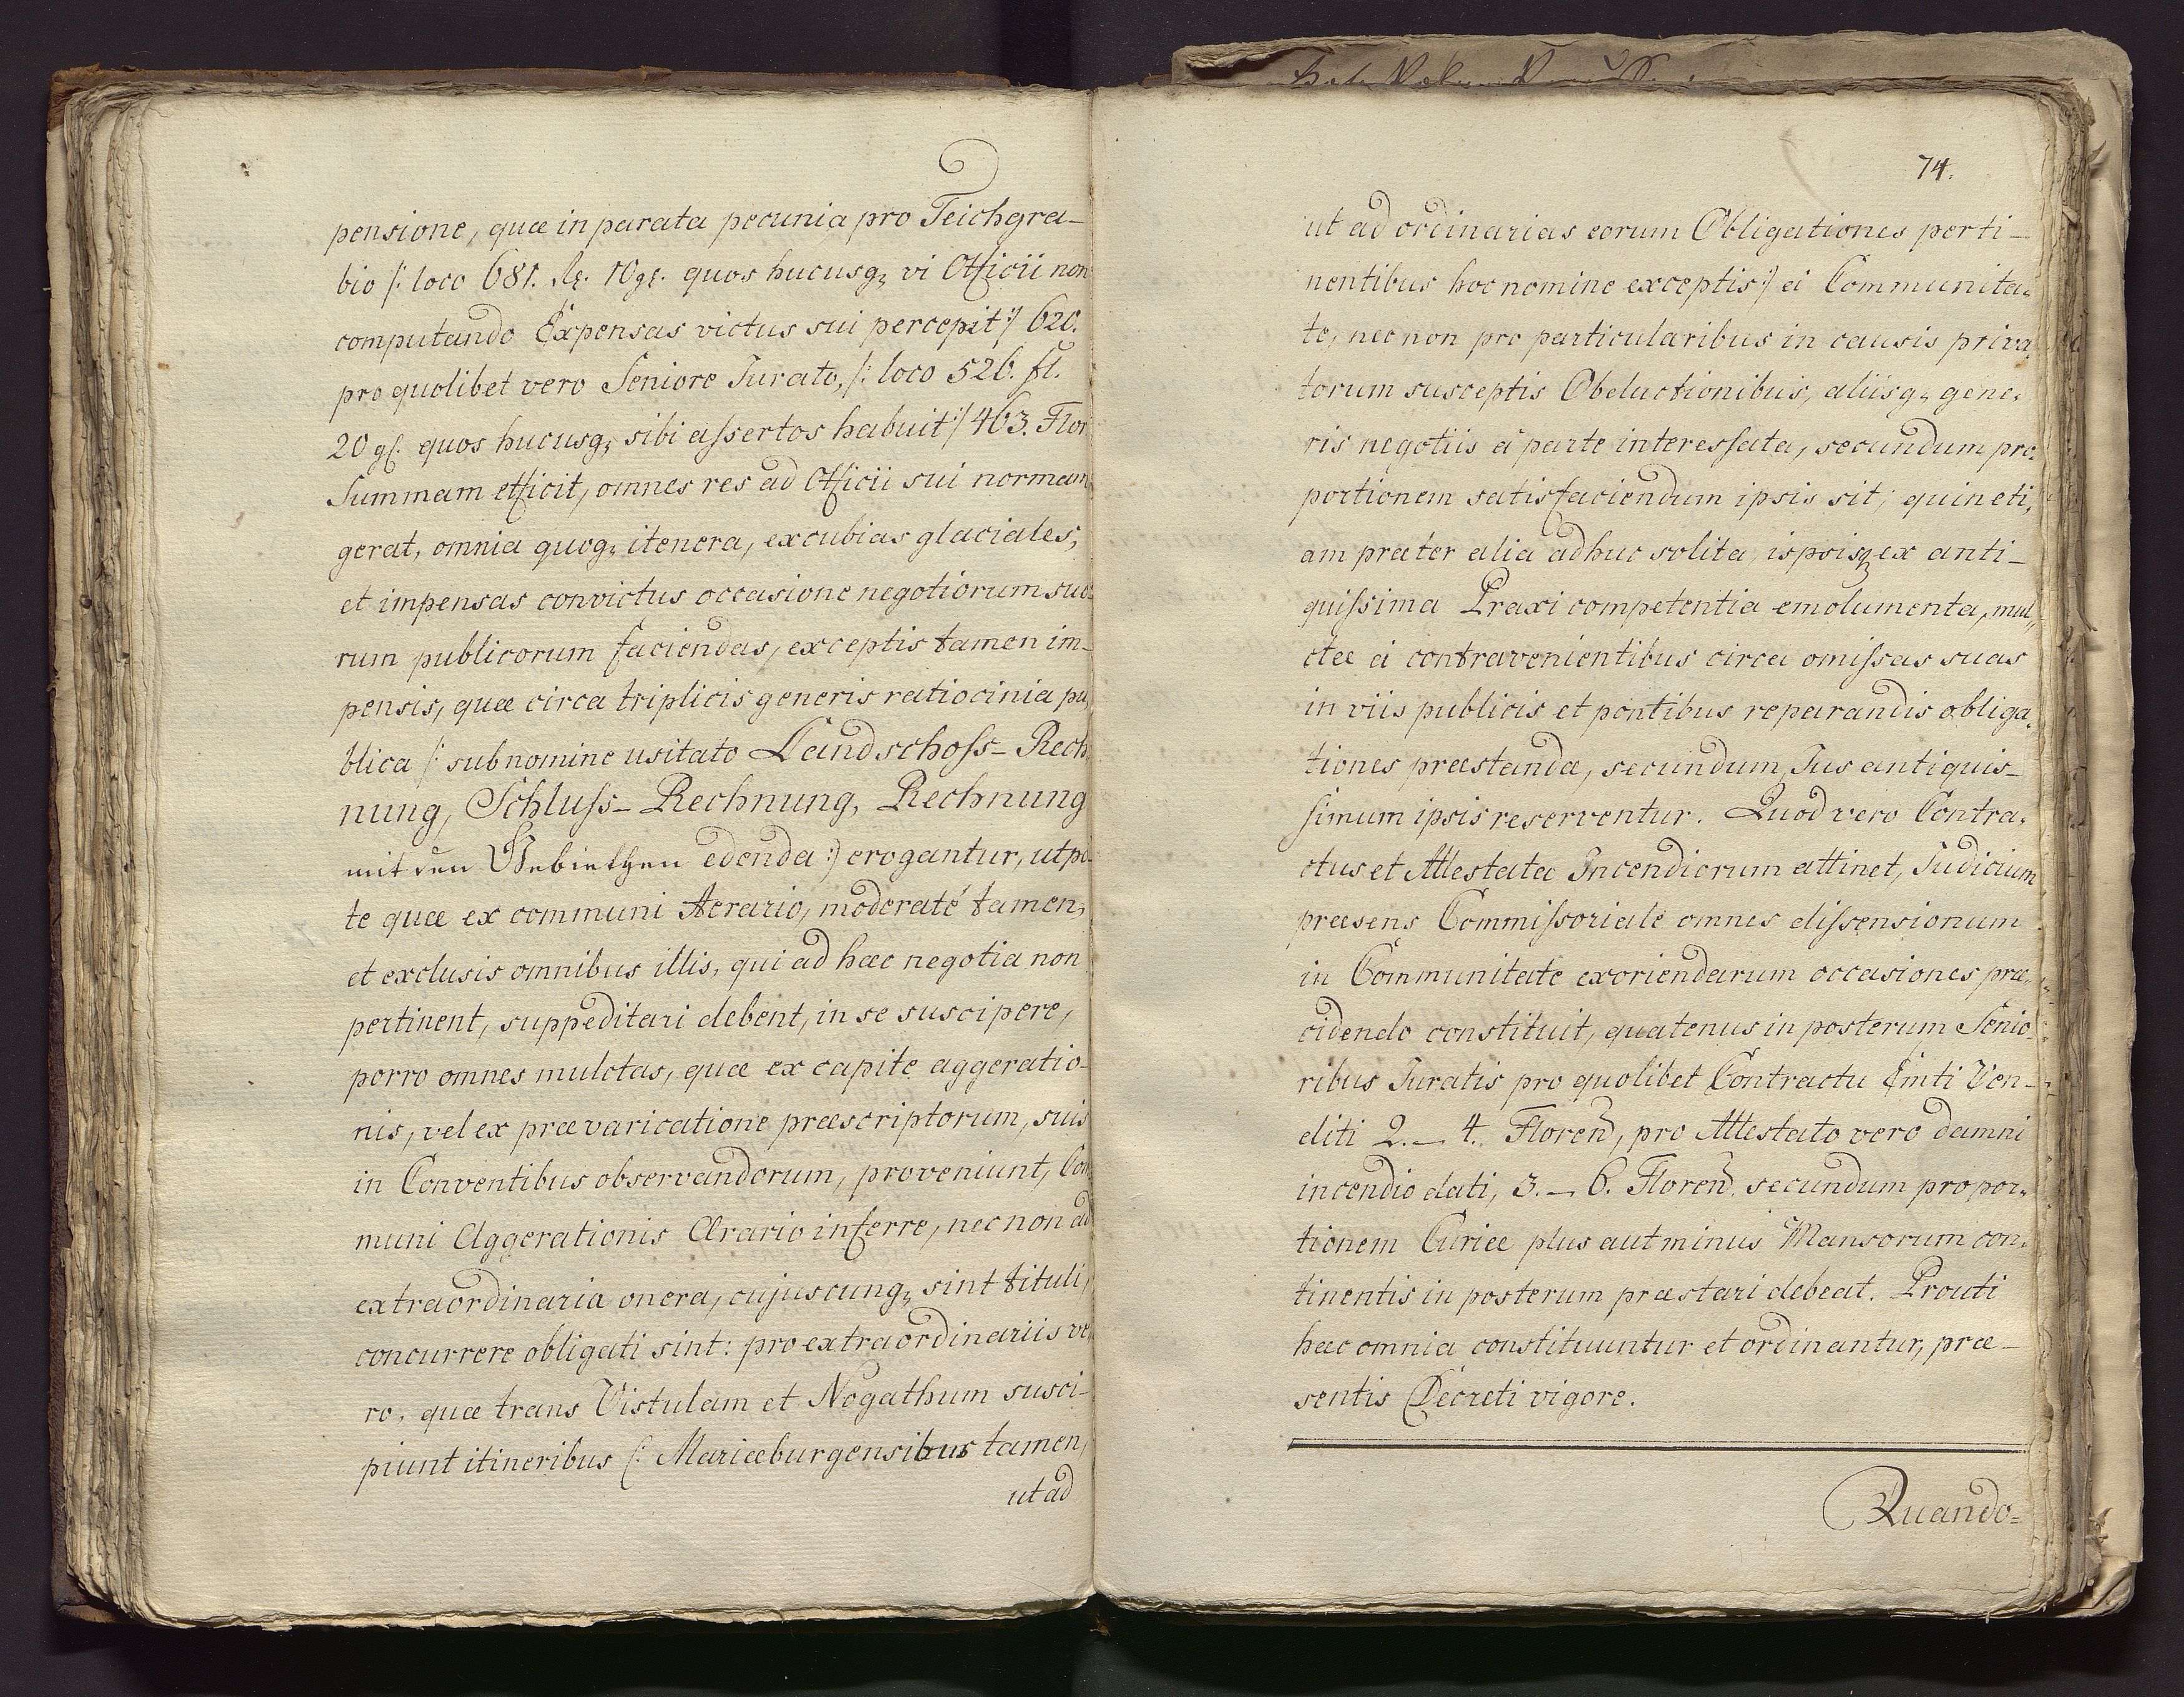 pensione, quæ in parata pecunia pro Teichgra-
bio /: loco 681. 10 gr. quos hucusq₃ vi Officii non
computando Expensas victus sui percepit :/ 620.
pro quolibet vero Seniore Jurato, /: loco 526. fl.
20 gr. quos hucusq₃ sibi aſsertos habuit :/ 463. Flor
Summam efficit, omnes res ad Officii sui normam
gerat, omnia quoq₃ itenera, excubias glaciales,
et impensas convictus occasione negotiorum suo:
rum publicorum faciendas, exceptis tamen im-
pensis, quæ circa triplicis generis ratiocinia pu
blica /: sub nomine usitato Landschoſs-Rech
nung, Schluſs-Rechnung, Rechnung
mit den Gebiethen edenda :) erogantur, utpo-
te quæ ex communi Aerario, moderaté tamen,
et exclusis omnibus illis, qui ad hæc negotia non
pertinent, suppeditari debent, in se suscipere,
porro omnes mulctas, quæ ex capite aggeratio-
nis, vel ex prævaricatione præscriptorum, suis
in Conventibus observandorum, proveniunt, Com
muni Aggerationis Ærario inferre, nec non ad
extraordinaria onera, cujuscunq₃ sint tituli,
concurrere obligati sint: pro extraordinariis ve
ro, quæ trans Vistulam et Nogathum susci-
piunt itineribus (: Mariæburgensibus tamen,
ut ad
74.
ut ad ordinarias eorum Obligationes perti-
nentibus hoc nomine exceptis :/ á Communita-
te, nec non pro particularibus in causis priva,
torum susceptis Obeluctionibus, aliisq₃ gene,
ris negotiis á parte intereſsata, secundum pro,
portionem satisfaciendum ipsis sit; quin eti,
am præter alia adhuc solita, ispsisq₃ ex anti-
quiſsima Praxi competentia emolumenta, mul,,
ctæ á contravenientibus circa omiſsas suas
in viis publicis et pontibus reparandis obliga,
tiones præstandæ, secundum Jus antiquis-
simum ipsis reserventur. Quod vero Contra,
ctus et Attestata Incendiorum attinet, Judicium
præsens Commiſsorialé omnes diſsensionum
in Communitate exoriendarum occasiones præ,
cidendo constituit, quatenus in posterum Senio,
ribus Juratis pro quolibet Contractu Emti Ven-
diti 2. – 4. Floren, pro Attestato vero damni
incendio dati, 3. – 6. Floren, secundum propor,
tionem Curiæ plus aut minus Mansorum con,
tinentis in posterum præstari debeat. Prouti
hæc omnia constituuntur et ordinantur, præ-
sentis Decreti vigore.
Quando=